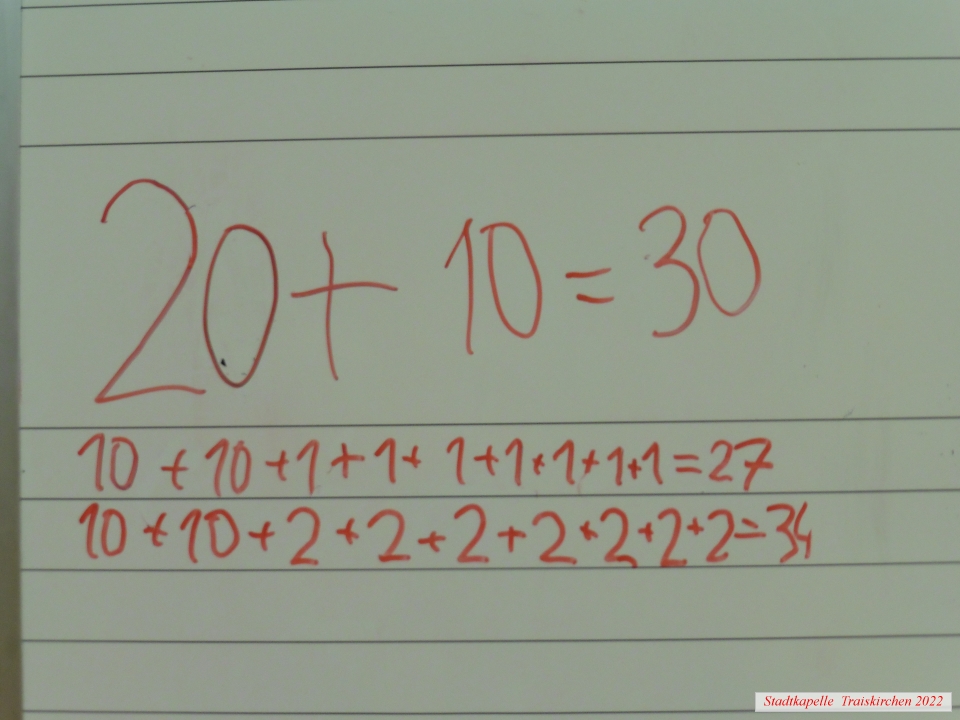 20+ 10 = 30
10 + 10 + 1 + 1 + 1 + 1 + 1 + 1 + 1 = 27
10 + 10 + 2 + 2 + 2 + 2 + 2 + 2 + 2 = 34
Stadtkapelle Traiskirchen 2022